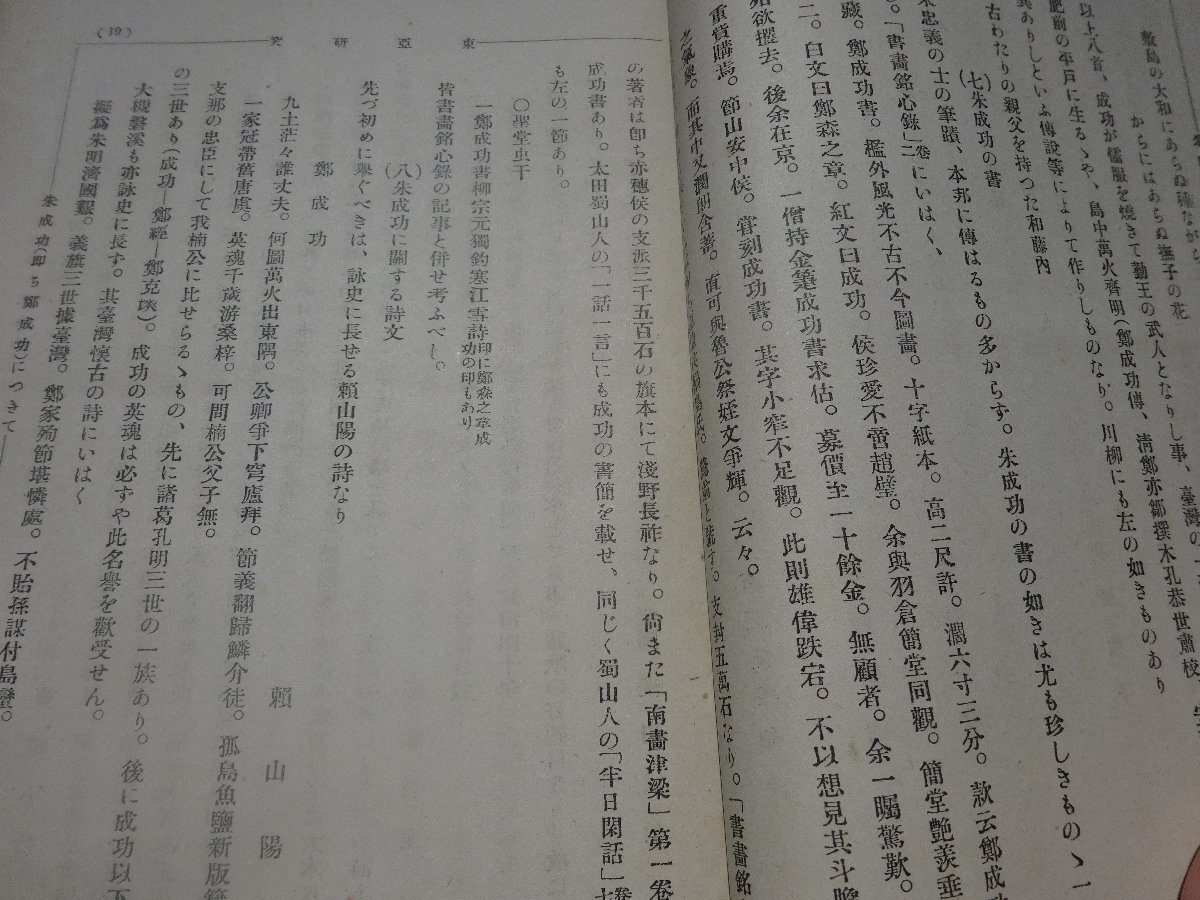 敷島の大和にあらぬ種ながら
からにはあらぬ撫子の花
以上八首、成功が儒服を燒きて勤王の武人となりし事、臺灣の
肥前の平戸に生るゝや、島中萬火齊明(鄭成功傳、淸鄭亦鄒撰木孔恭世肅校
異ありしといふ傳說等によりて作りしものなり。川柳にも左の如きものあり
古わたりの親父を持つた和藤内
(七)朱成功の書
忠義の士の筆蹟、本邦に傳はるもの多からず。朱成功の書の如きは尤も珍しきものゝ一
。「書畵銘心錄」二卷にいはく、
藏。鄭成功書。檻外風光不古不今圖畵。十字紙本。高二尺許。濶六寸三分。款云鄭成功
二。白文曰鄭森之章。紅文曰成功。侯珍愛不啻趙璧。余與羽倉簡堂同觀。簡堂艶羨垂
欲攫去。後余在京。一僧持金箋成功書求估。募價至一十餘金。無顧者。余一矚驚歎。
重貲購焉。節山安中侯。嘗刻成功書。其字小窄不足觀。此則雄偉跌宕。不以想見其斗膽
之氣象。而其中又潤朗含蓄。直可與魯公祭姪文爭輝。云々。
支封五萬石なり。「書畵銘
の著者は卽ち赤穗侯の支派三千五百石の旗本にて淺野長祚なり。尙また「南畵津梁」第一卷
成功書あり。太田蜀山人の「一話一言」にも成功の書簡を載せ、同じく蜀山人の「半日閑話」卷七
も左の一節あり。
〇聖堂虫干
一鄭成功書柳宗元獨釣寒江雪詩印に鄭森之章成功の印もあり
皆書畵銘心錄の記事と併せ考ふべし。
(八)朱成功に關する詩文
先づ初めに擧ぐべきは、詠史に長せる賴山陽の詩なり
鄭成功
賴山陽
九土茫々誰丈夫。何圖萬火出東隅。公卿爭下穹廬拜。節義翻歸鱗介徒。孤島魚鹽新版
一家冠帶舊唐虞。英魂千歲游桑梓。可問楠公父子無。
支那の忠臣にして我楠公に比せらるゝもの、先に諸葛孔明三世の一族あり。後に成功以下
の三世あり(成功―鄭經―鄭克塽)。成功の英魂は必ずや此名譽を歡受せん。
大槻磐溪も亦詠史に長ず。其臺灣懷古の詩にいはく
擬爲朱明濟國艱。義旗三世據臺灣。鄭家殉節堪憐處。不貽孫謀付島蠻。
朱成功(卽ち鄭成功)につきて
東亞硏究
(19)